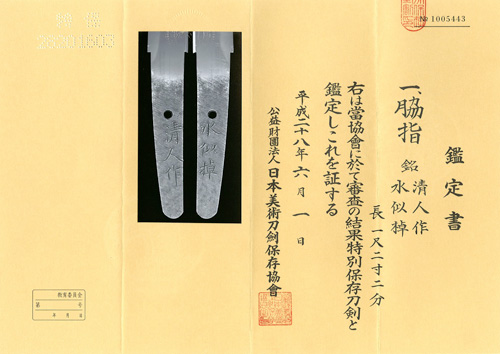 № 1005443
鑑定書
一、脇指 銘 清人作
氷似掉
長一尺二寸二分
右は當協會に於て審査の結果特別保存刀剣と
鑑定しこれを証する
平成二十八年六月一日
公益財團法人 日本美術刀剣保存協會
氷似掉
清人作
第 号
年 月 日